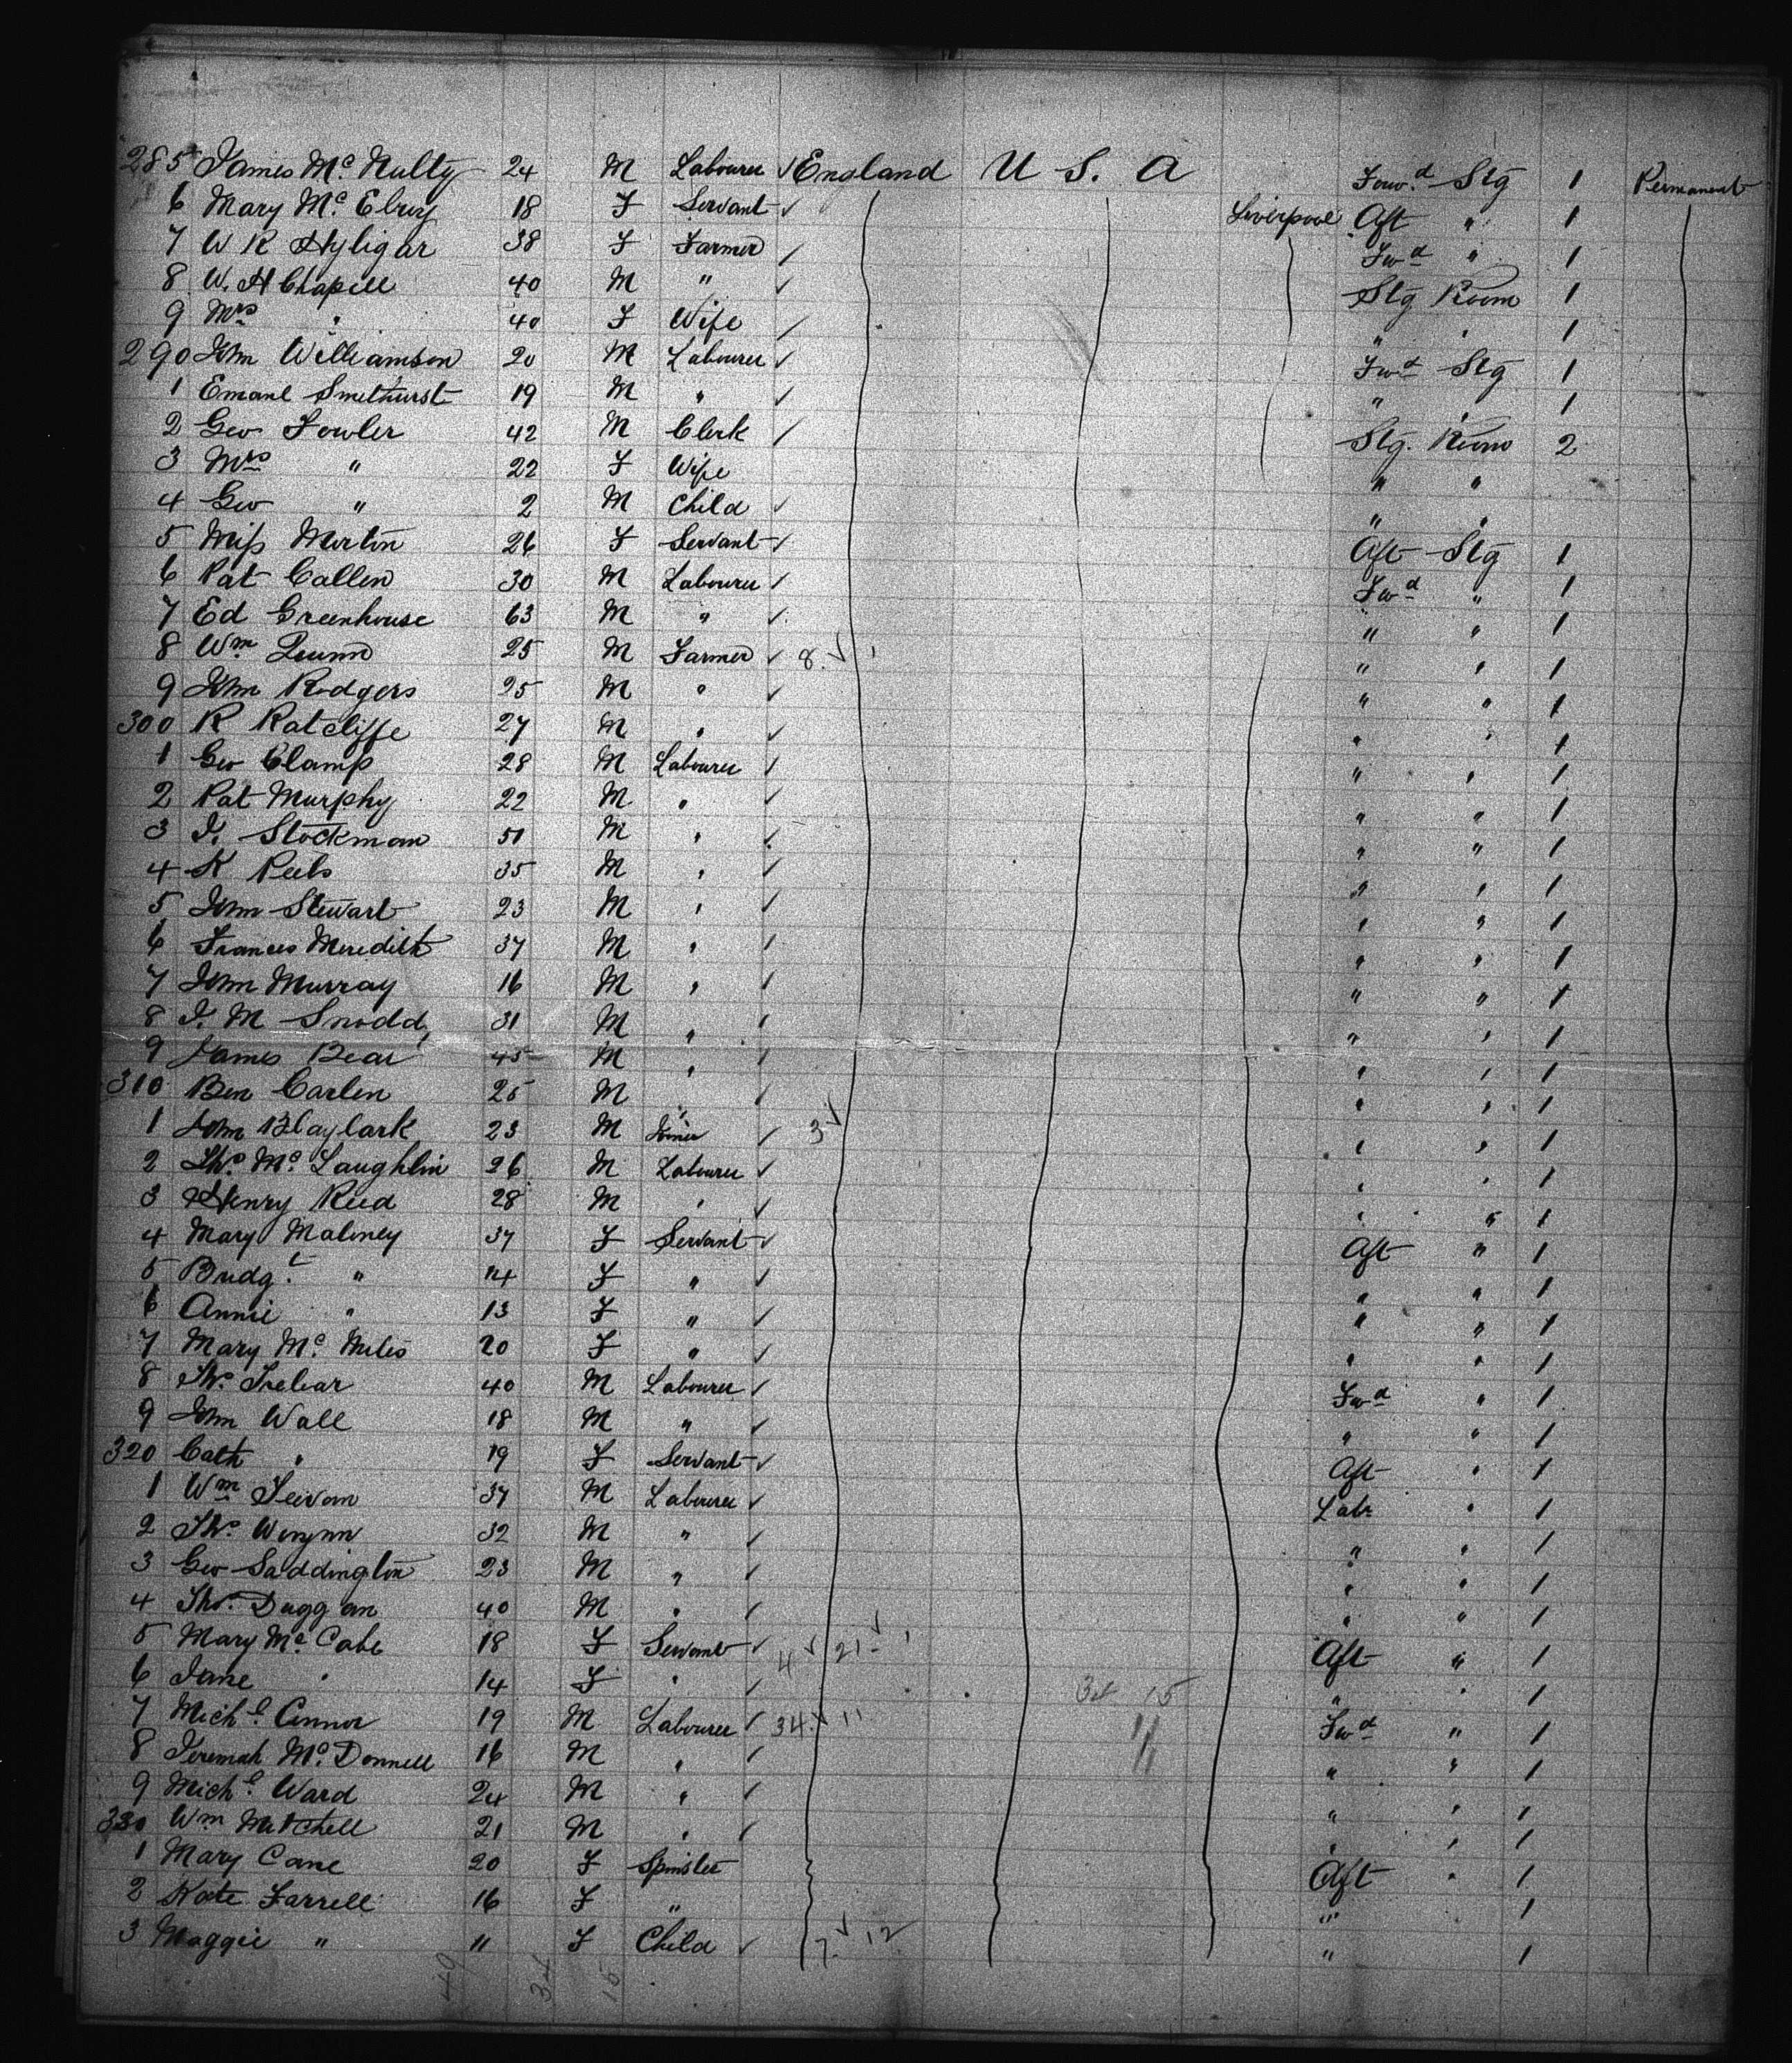 285 James Mc Nulty 24 M Labourer ✓ England U S. A Forwd Stg 1 Permanent
6 Mary Mc Elroy 18 F Servant ✓ Liverpool Aft " 1
7 W R Hyligar 38 F Farmer ✓ Fwd " 1
8 W. H Chapell 40 M " ✓ Stg Room 1
9 Mrs " 40 F Wife ✓ " " 1
290 John Williamson 20 M Labourer ✓ Fwd Stg 1
1 Emanl Smethurst 19 M " ✓ " " 1
2 Geo Fowler 42 M Clerk ✓ Stg. Room 2
3 Mrs " 22 F Wife " "
4 Geo " 2 M Child ✓ " "
5 Miss Morton 26 F Servant ✓ Aft Stg 1
6 Pat Callen 30 M Labourer ✓ Fwd " 1
7 Ed Greenhouse 63 M " ✓ " " 1
8 Wm Quinn 25 M Farmer ✓ 8. ✓ " " 1
9 John Rodgers 25 M " ✓ " " 1
300 R Ratcliffe 27 M " ✓ " " 1
1 Geo Clamp 28 M Labourer ✓ " " 1
2 Pat Murphy 22 M " ✓ " " 1
3 J. Stockman 51 M " ✓ " " 1
4 K Peebs 35 M " ✓ " " 1
5 John Stewart 23 M " ✓ " " 1
6 Frances Meredith 37 M " ✓ " " 1
7 John Murray 16 M " ✓ " " 1
8 J. M Snodd 31 M " ✓ " " 1
9 James Bear 45 M " ✓ " " 1
310 Ben Carlen 25 M " ✓ " " 1
1 John Blaylark 23 M Joiner ✓ 3 ✓ " " 1
2 Thos Mc Laughlin 26 M Labourer ✓ " " 1
3 Henry Reed 28 M " ✓ " " 1
4 Mary Maloney 37 F Servant ✓ Aft " 1
5 Bridgt " 14 F " ✓ " " 1
6 Annie " 13 F " ✓ " " 1
7 Mary Mc Niles 20 F " ✓ " " 1
8 Thos Treliar 40 M Labourer ✓ Fwd " 1
9 John Wall 18 M " ✓ " " 1
320 Cath " 19 F Servant ✓ Aft " 1
1 Wm 37 M Labourer ✓ " 1
2 Thos Wynn 32 M " ✓ " " 1
3 Geo Saddington 23 M " ✓ " " 1
4 Thos. Duggan 40 M " ✓ " " 1
5 Mary Mc Cabe 18 F Servant ✓ 4 ✓ 21 ✓ Aft " 1
6 Jane " 14 F " ✓ 34 15 " " 1
7 Michl. Connor 19 M Labourer ✓ 34. ✓ 11 Fwd " 1
8 Jeremah Mc Donnell 16 M " ✓ " " 1
9 Michl. Ward 24 M " ✓ " " 1
330 Wm Mitchell 21 M " ✓ " " 1
1 Mary Cane 20 F Spinster Aft " 1
2 Kate Farrell 16 F " " 1
3 Maggie " 11 F Child ✓ 7 ✓ 12 " 1
49 34 15